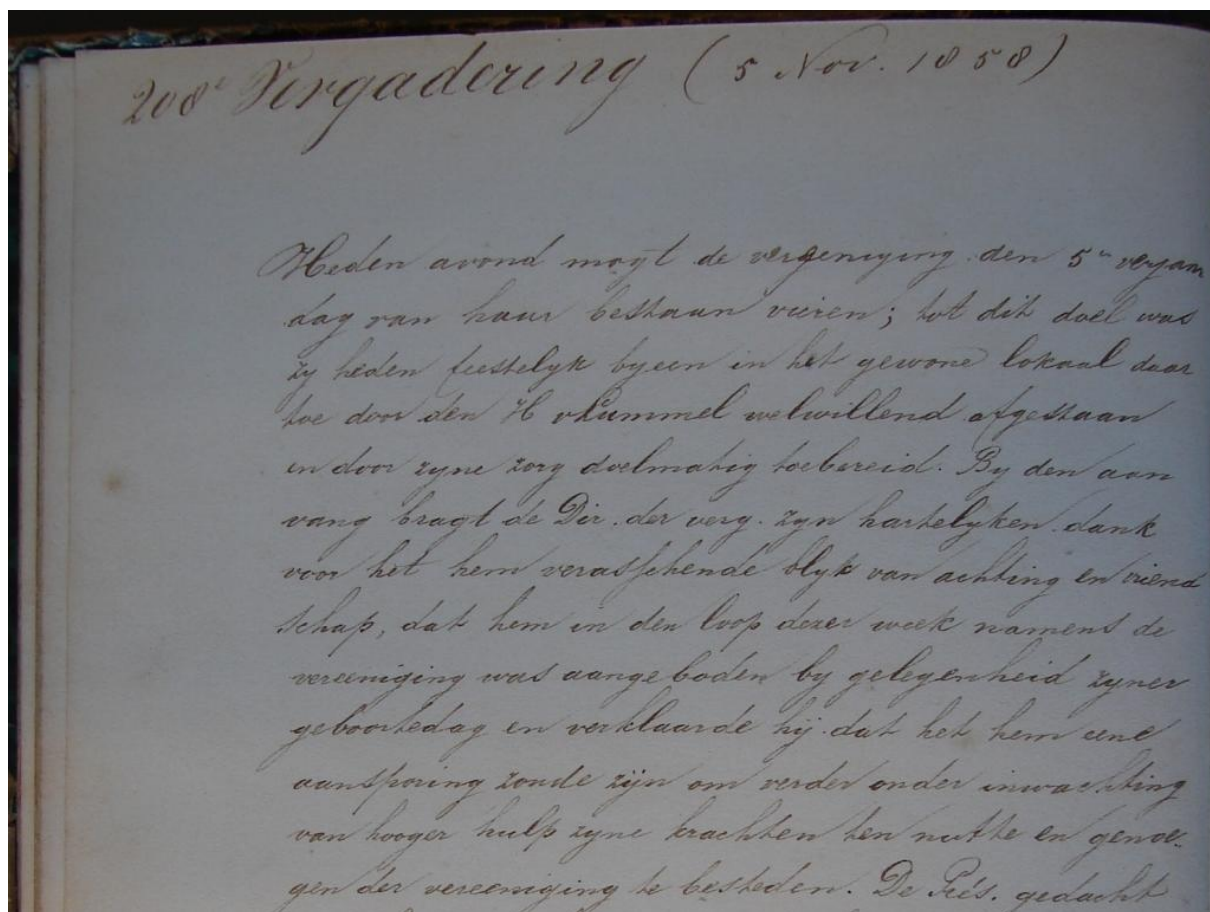 208e Vergadering (5 Nov. 1858)
Heden avond mogt de vergeniging den 5en verjaar
dag van haar bestaan vieren; tot dit doel was
zy heden feestelyk byeen in het gewone lokaal daar
toe door den H welwillend afgestaan
en door zyne zorg doelmatig toebereid. By den aan
vang bragt de Dir. der verg. zyn hartelyken dank
voor het hem verasschende blyk van achting en vriend
schap, dat hem in den loop dezer week namens de
vereeniging was aangeboden by gelegenheid zyner
geboortedag en verklaarde hij dat het hem eene
aansporing zoude zijn om verder onder inwachting
van hooger hulp zyne krachten ten nutte en genoe-
gen der vereeniging te besteden. De Prés. gedacht